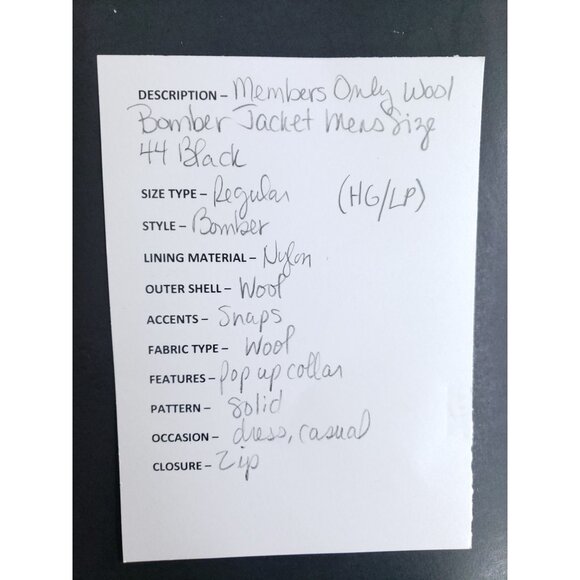 DESCRIPTION – Members Only Wool
Bomber Jacket Mens Size
44 Black
SIZE TYPE – Regular (HG/LP)
STYLE – Bomber
LINING MATERIAL – Nylon
OUTER SHELL – Wool
ACCENTS – Snaps
FABRIC TYPE – Wool
FEATURES – Pop up collar
PATTERN – Solid
OCCASION – dress, casual
CLOSURE – Zip